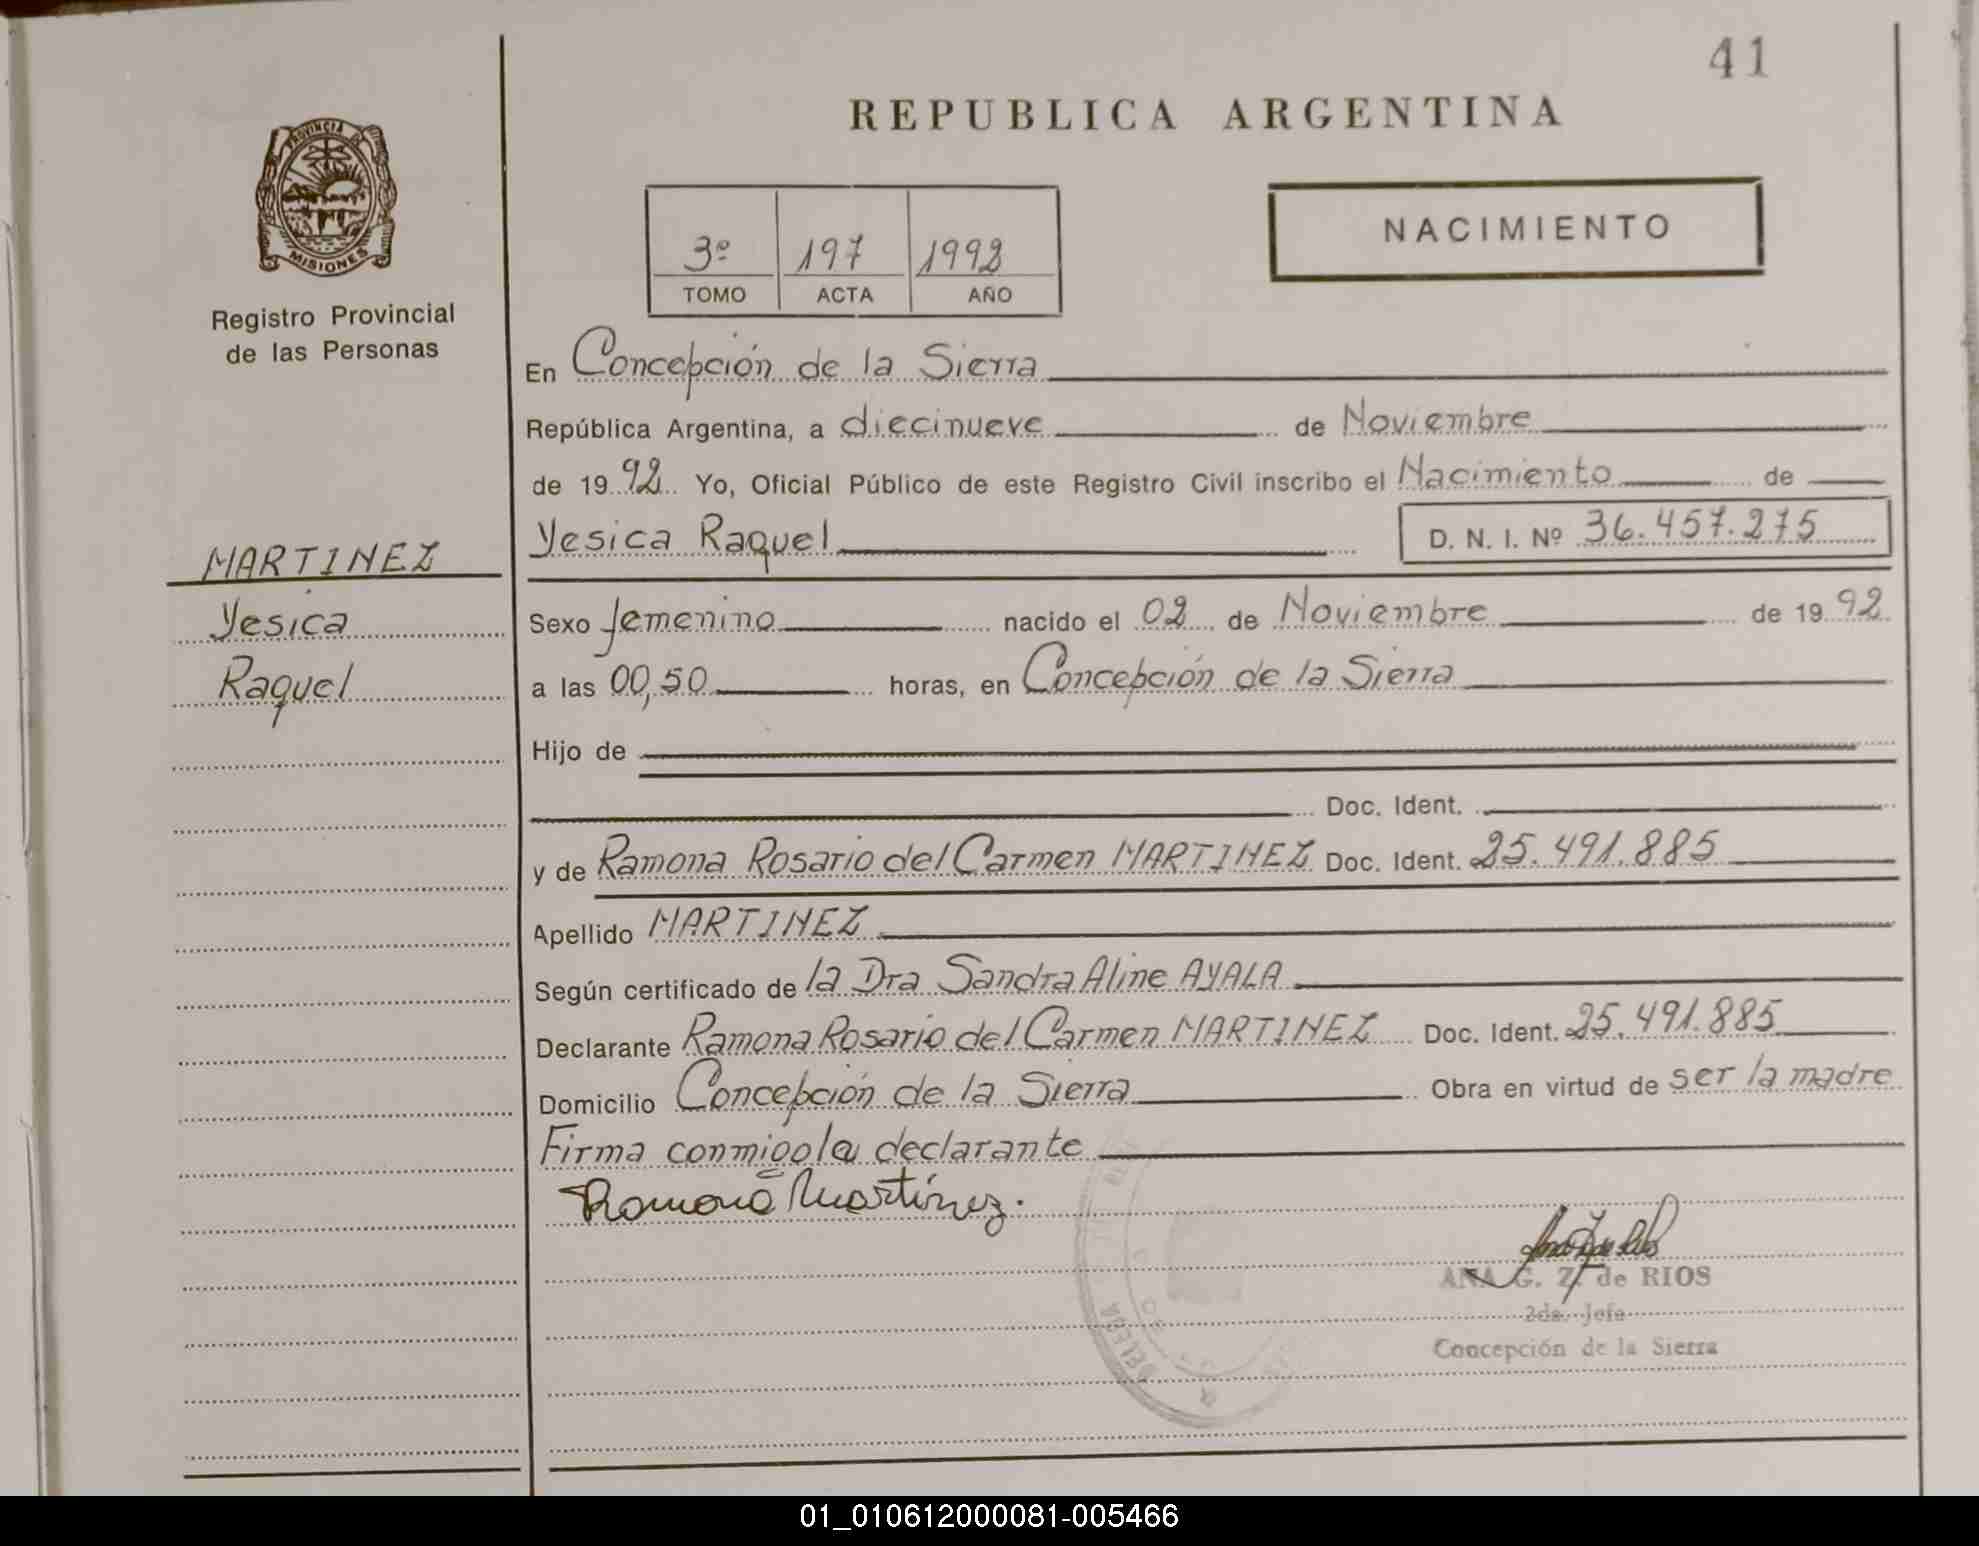 41
REPUBLICA ARGENTINA
PROVINCIA DE
MISIONES
Registro Provincial
de las Personas
NACIMIENTO
3º 197 1992
TOMO ACTA AÑO
En Concepción de la Sierra
República Argentina, a diecinueve de Noviembre
de 1992 Yo, Oficial Público de este Registro Civil inscribo el Nacimiento de
Yesica Raquel D. N. I. Nº 36.457.275
MARTINEZ
Yesica
Raquel
Sexo femenino nacido el 02 de Noviembre de 1992
a las 00,50 horas, en Concepción de la Sierra
Hijo de
Doc. Ident.
y de Ramona Rosario del Carmen MARTINEZ Doc. Ident. 25.491.885
Apellido MARTINEZ
Según certificado de la Dra Sandra Aline AYALA
Declarante Ramona Rosario del Carmen MARTINEZ Doc. Ident. 25.491.885
Domicilio Concepción de la Sierra Obra en virtud de ser la madre
Firma conmigo la declarante
Ramona Martínez.
ANA G. Z. de RIOS
2da. Jefa
Concepción de la Sierra
01_010612000081-005466